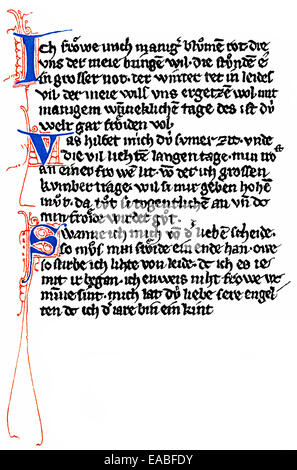 Ich frͦowe mich maniger blͦumen rot die
uns der meie bringen wil. die stͦunden e
in grosser not. der winter tet in leides
vil. der meie wils uns ergetzen wol mit
manigem wunneklichen tage des ist dú
welt gar frͦoiden vol.
Was hilfet mich dú sumer zit. unde
die vil liehten langen tage. min trost
an einer frͦowen lit. von der ich grossen
kumber trage. wil si mir geben hohen
mͦut. da tͦut si togentlichen an un̄ dc
min frͦoide wirdet gͦut.
Swanne ich mich von der lieben scheide.
so mͦus min frͦoide ein ende han. owe
so stirbe ich lihte von leide. dc ich es ie
mit ir began. ich enweis niht frͦowe we
minne sint. mich lat dú liebe sere engel
ten dc ich der iare bin ein kint
alamy stock photo
EABFDY
www.alamy.com